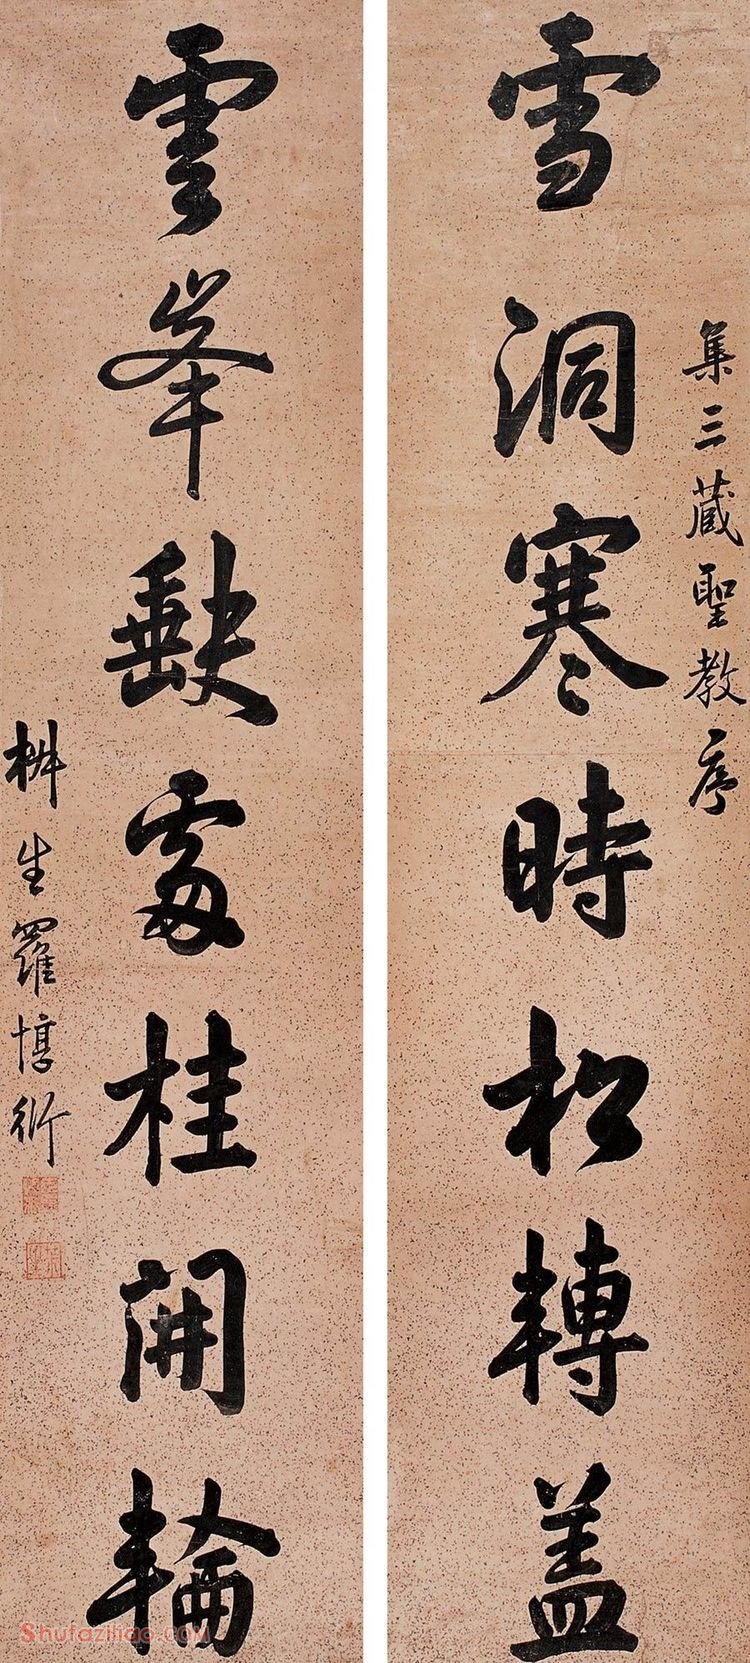 集三藏聖教序
雪洞寒時松轉盖
雲峯缺處桂開輪
椒生羅惇衍
Shufaziliao.com